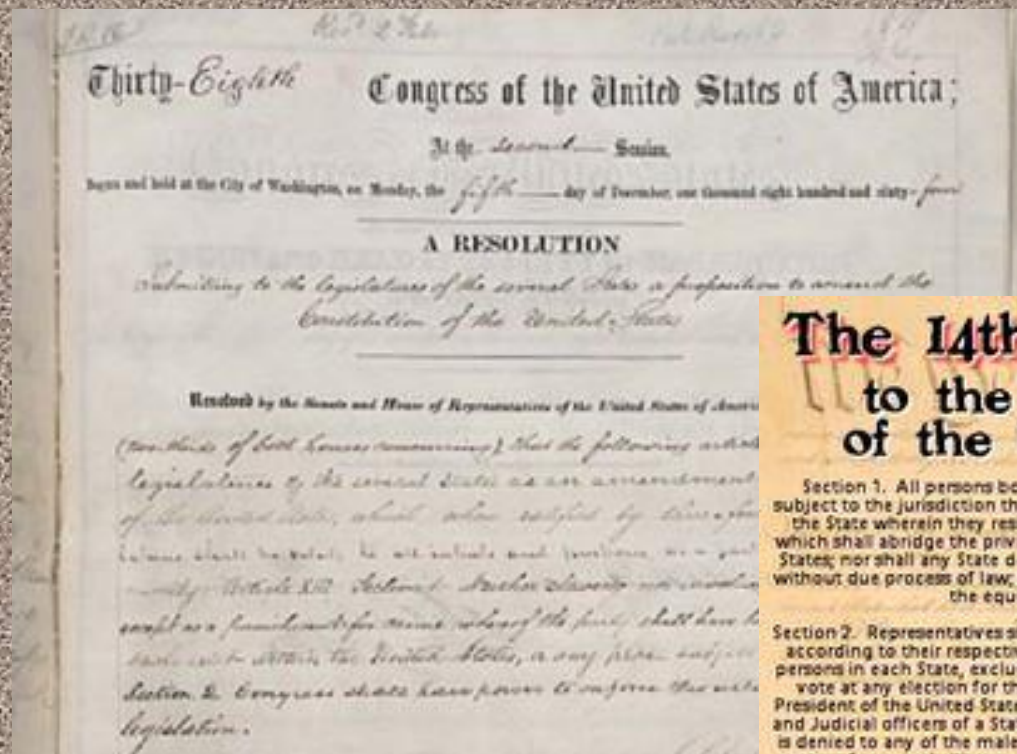 Thirty-Eighth Congress of the United States of America;
At the second Session,
Begun and held at the City of Washington, on Monday, the fifth day of December, one thousand eight hundred and sixty-four
A RESOLUTION
Submitting to the legislatures of the several States a proposition to amend the
Constitution of the United States
Resolved by the Senate and House of Representatives of the United States of Americ
(two-thirds of both houses concurring), that the following article
legislatures of the several States as an amendment
of the United States, which when ratified by three-four
to all intents and purposes, as a part
Article XIII Section 1. Neither slavery nor involun
except as a punishment for crime whereof the party shall have b
within the United States, or any place subject
Section 2. Congress shall have power to enforce this artic
legislation.
The 14th
to the
of the
Section 1. All persons bo
subject to the jurisdiction th
the State wherein they res
which shall abridge the priv
States; nor shall any State d
without due process of law;
the equ
Section 2. Representatives s
according to their respectiv
persons in each State, exclu
vote at any election for th
President of the United State
and Judicial officers of a Sta
is denied to any of the male